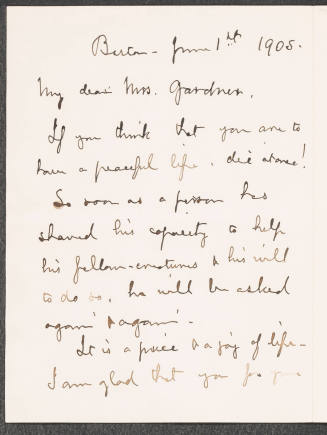 Boston - June 1st 1905.
My dear Mrs. Gardner,
If you think that you are to
have a peaceful life, die at once!
So soon as a person has
showed his capacity to help
his fellow-creatures & his will
to do so, he will be asked
again & again.
It is a price & a joy of life -
I am glad that you for